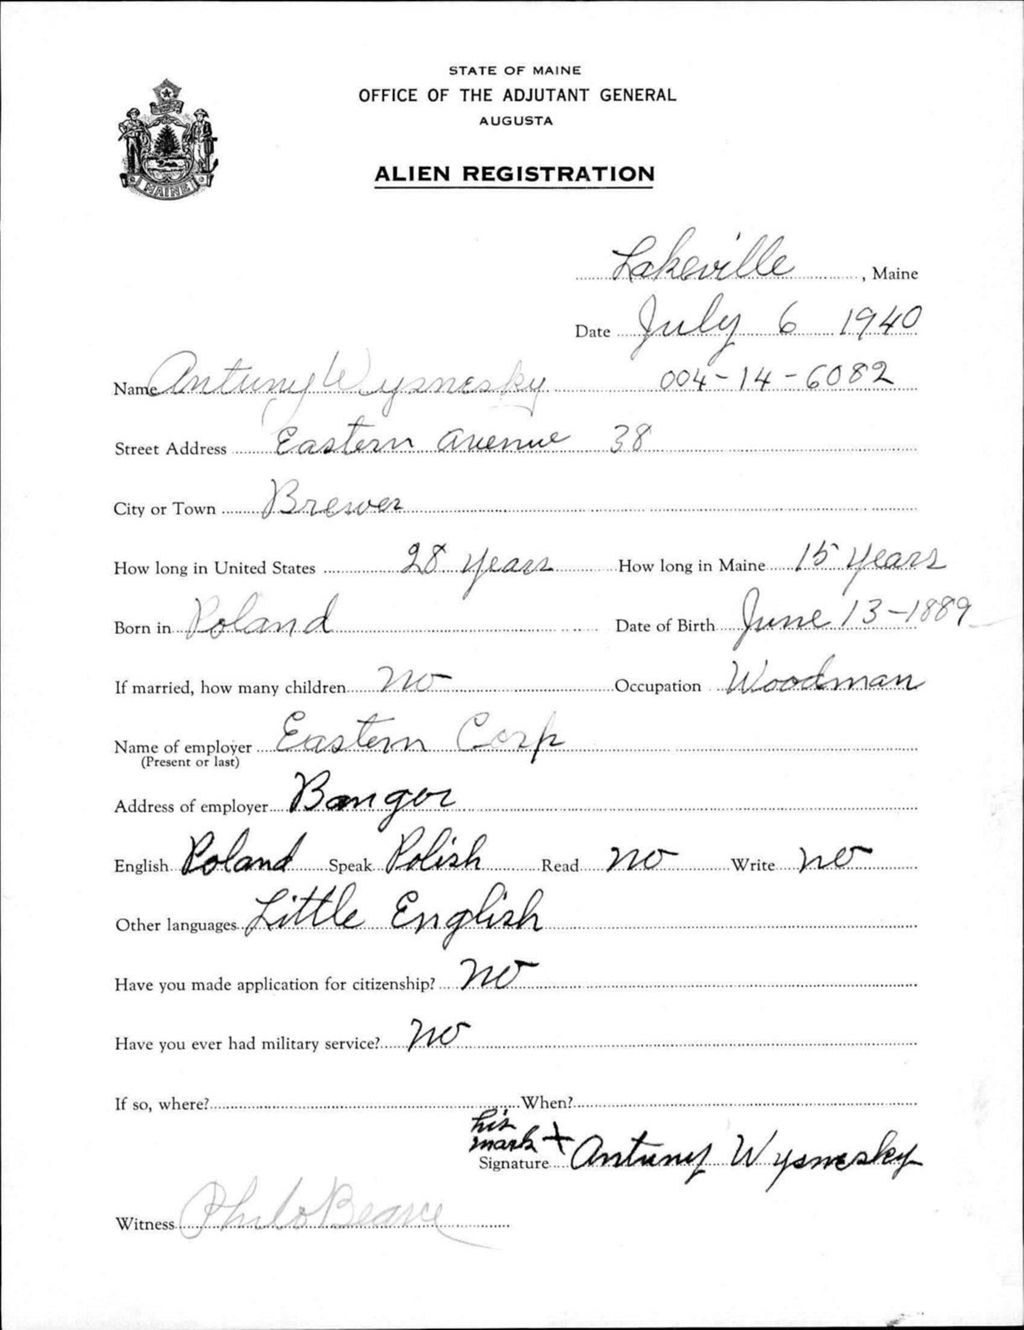 STATE OF MAINE
OFFICE OF THE ADJUTANT GENERAL
AUGUSTA
ALIEN REGISTRATION
MAINE
Lakeville, Maine
Date July 6 1940
Name Antuny Wysnesky 004-14-6082
Street Address Eastern avenue 38
City or Town Brewer
How long in United States 28 years How long in Maine 15 years
Born in Poland Date of Birth June 13-1889
If married, how many children no Occupation Woodman
Name of employer Eastern Corp
(Present or last)
Address of employer Bangor
English Poland Speak Polish Read no Write no
Other languages Little English
Have you made application for citizenship? no
Have you ever had military service? no
If so, where? When?
his
mark +
Signature Antuny Wysnesky
Witness Philo Bearce